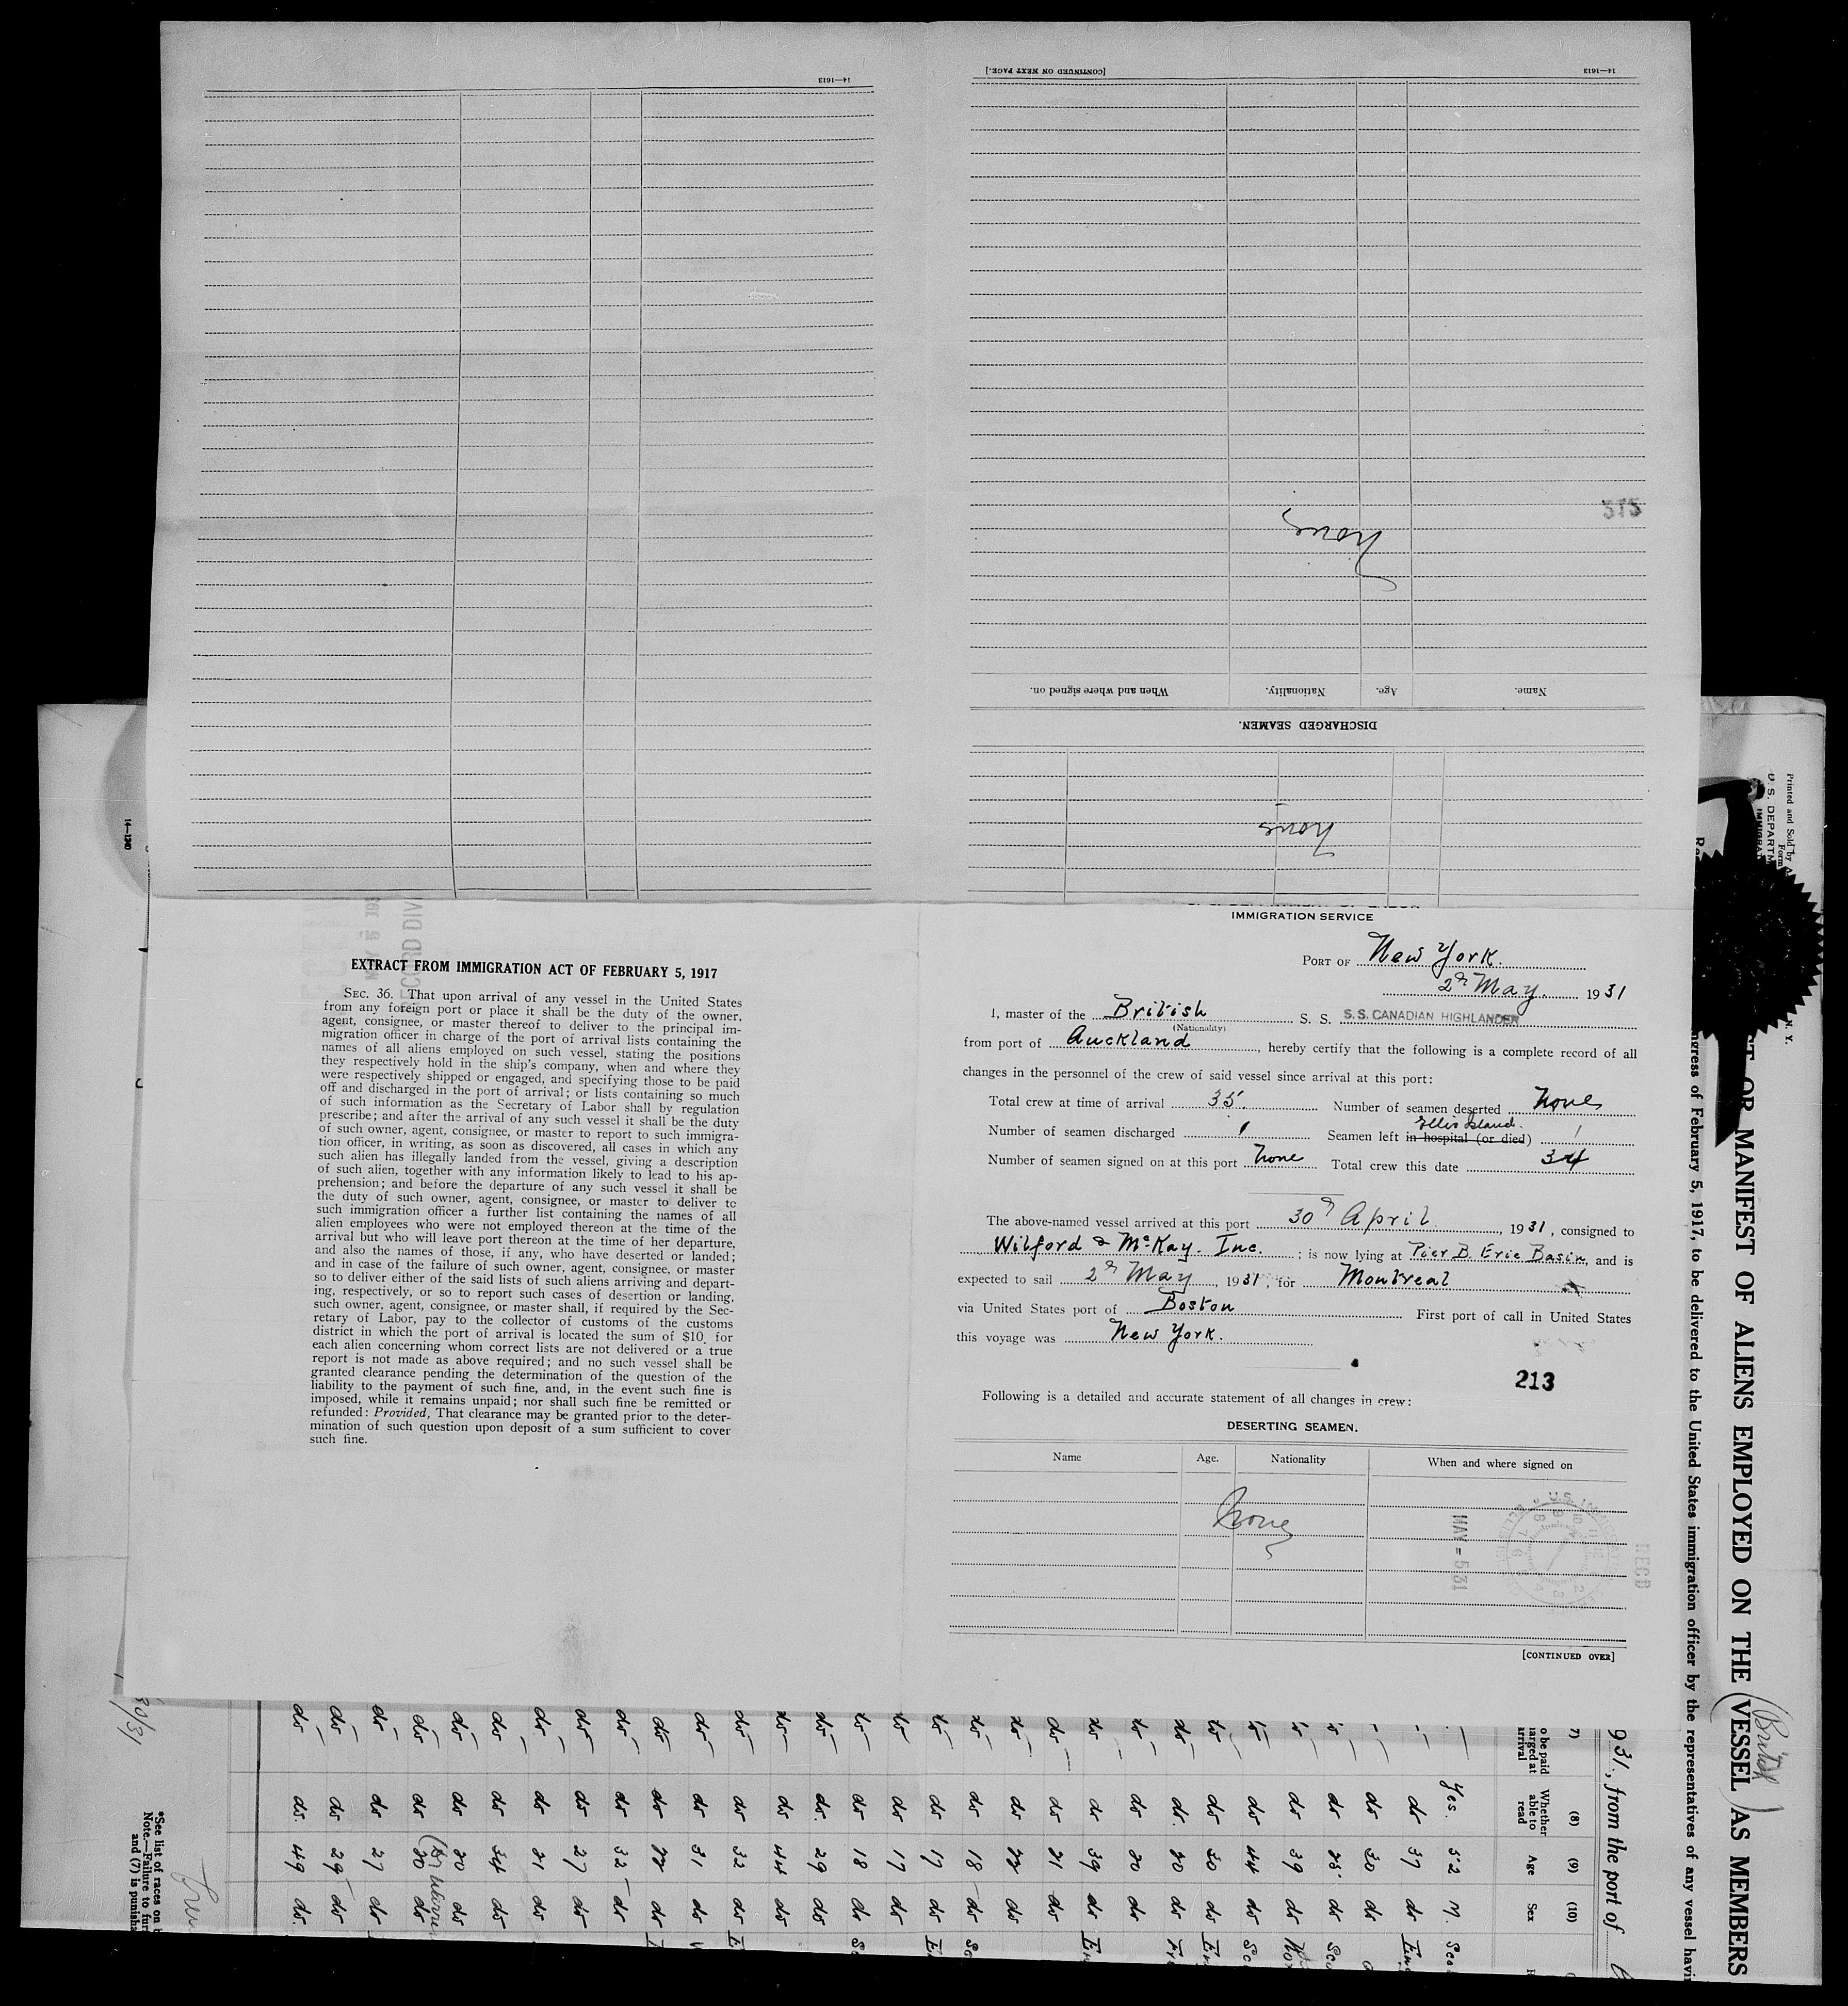 14—1613
[CONTINUED ON NEXT PAGE.]
14—1613
375
None
Name.
Age.
Nationality.
When and where signed on.
DISCHARGED SEAMEN.
None
IMMIGRATION SERVICE
PORT OF New York.
2d May. 1931
I, master of the British S. S. S.S. CANADIAN HIGHLANDER
(Nationality)
from port of Auckland, hereby certify that the following is a complete record of all
changes in the personnel of the crew of said vessel since arrival at this port:
Total crew at time of arrival 35. Number of seamen deserted None
Ellis Island.
Number of seamen discharged 1 Seamen left in hospital (or died) 1
Number of seamen signed on at this port None Total crew this date 34
The above-named vessel arrived at this port 30th April, 1931, consigned to
Wilford & McKay. Inc.; is now lying at Pier B. Erie Basin, and is
expected to sail 2d May, 1931, for Montreal
via United States port of Boston First port of call in United States
this voyage was New York.
213
Following is a detailed and accurate statement of all changes in crew:
DESERTING SEAMEN.
Name Age. Nationality When and where signed on
None
MAY - 5 31
REC'D
[CONTINUED OVER]
RECORD DIV
EXTRACT FROM IMMIGRATION ACT OF FEBRUARY 5, 1917
SEC. 36. That upon arrival of any vessel in the United States
from any foreign port or place it shall be the duty of the owner,
agent, consignee, or master thereof to deliver to the principal im-
migration officer in charge of the port of arrival lists containing the
names of all aliens employed on such vessel, stating the positions
they respectively hold in the ship's company, when and where they
were respectively shipped or engaged, and specifying those to be paid
off and discharged in the port of arrival; or lists containing so much
of such information as the Secretary of Labor shall by regulation
prescribe; and after the arrival of any such vessel it shall be the duty
of such owner, agent, consignee, or master to report to such immigra-
tion officer, in writing, as soon as discovered, all cases in which any
such alien has illegally landed from the vessel, giving a description
of such alien, together with any information likely to lead to his ap-
prehension; and before the departure of any such vessel it shall be
the duty of such owner, agent, consignee, or master to deliver to
such immigration officer a further list containing the names of all
alien employees who were not employed thereon at the time of the
arrival but who will leave port thereon at the time of her departure,
and also the names of those, if any, who have deserted or landed;
and in case of the failure of such owner, agent, consignee, or master
so to deliver either of the said lists of such aliens arriving and depart-
ing, respectively, or so to report such cases of desertion or landing,
such owner, agent, consignee, or master shall, if required by the Sec-
retary of Labor, pay to the collector of customs of the customs
district in which the port of arrival is located the sum of $10 for
each alien concerning whom correct lists are not delivered or a true
report is not made as above required; and no such vessel shall be
granted clearance pending the determination of the question of the
liability to the payment of such fine, and, in the event such fine is
imposed, while it remains unpaid; nor shall such fine be remitted or
refunded: Provided, That clearance may be granted prior to the deter-
mination of such question upon deposit of a sum sufficient to cover
such fine.
14—1240
Printed and Sold by
Form
U. S. DEPARTM
N. Y.
ST OR MANIFEST OF ALIENS EMPLOYED ON THE VESSEL AS MEMBERS
(British)
ngress of February 5, 1917, to be delivered to the United States immigration officer by the representatives of any vessel havi
931, from the port of
7) (8) (9) (10)
o be paid
arged at
arrival
Whether
able to
read
Age
Sex
Yes. 52 M. Sco
do 37 do Eng
do 30 do
do 25 do Sco
do 39 do Nor
do 44 do Sc
do 30 do En
do 20 do Fr
do 20 do
do 39 do En
do 21 do
do 22 do
do 18 do Sc
do 17 do E
do 17 do
do 18 do Sc
do 29 do
do 44 do
do 32 do E
do 31 do
do 22 do
do 32 do
do 27 do
do 21 do
do 34 do
do 20 do
do 20 do
do 27 do
do 29 do
do. 49 do.
*See list of races on b
Note.—Failure to fur
and (7) is punisha
30/31